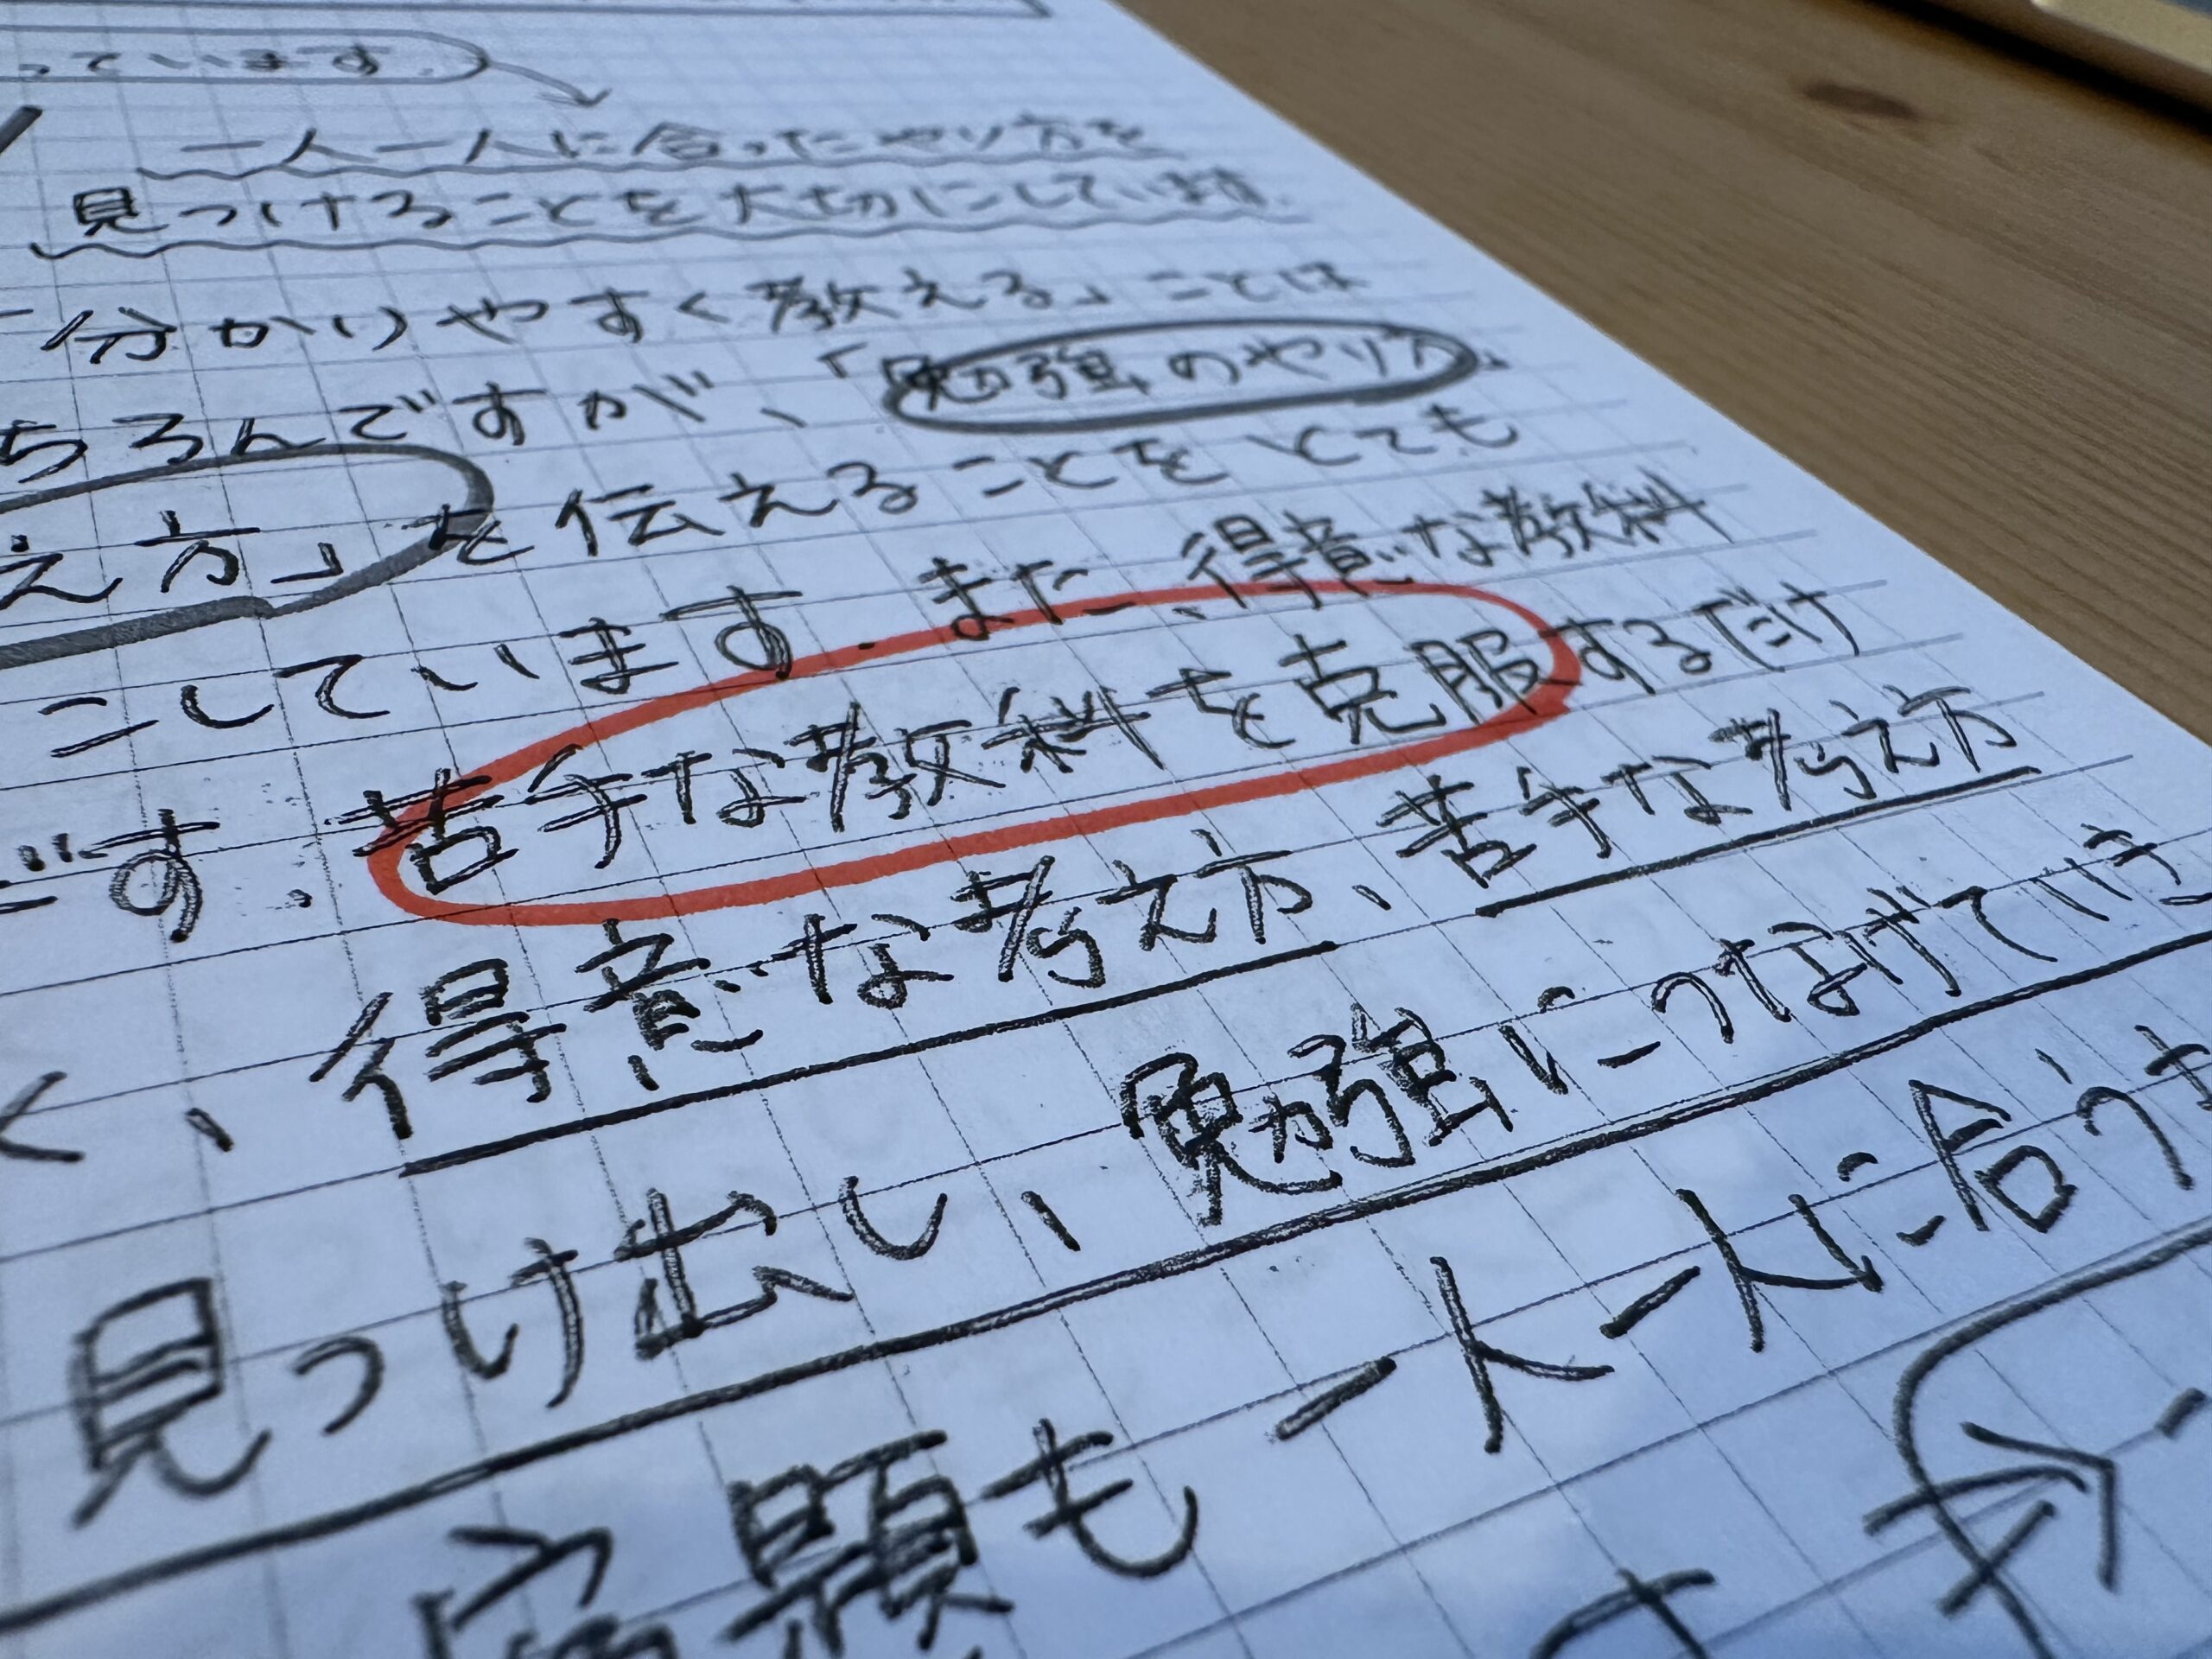 っています。
一人一人に合ったやり方を
見つけることを大切にしています。
「分かりやすく教える」ことは
ちろんですが、「勉強のやり方」
え方」を伝えることをとても
にしています。また、得意な教科
です。苦手な教科を克服するだけ
く、得意な考え方、苦手な考え方
見つけ出し、勉強につなげていき
宿題も一人一人に合うも